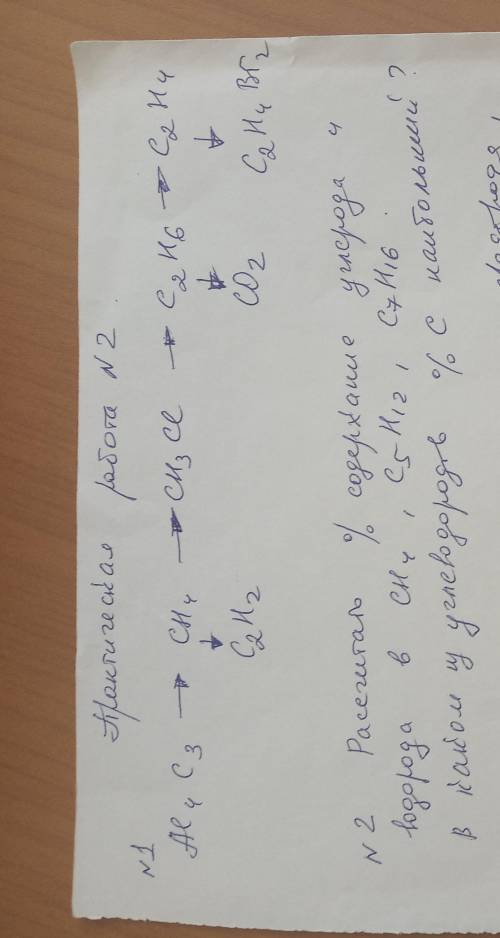 Практическая работа N 2.
N1
Al4C3 → CH4 → CH3Cl → C2H6 → C2H4
↓ ↓ ↓
C2H2 CO2 C2H4Br2
N2 Рассчитать % содержание углерода и
водорода в CH4, C5H12, C7H16.
В каком из углеводородов % C наибольший?